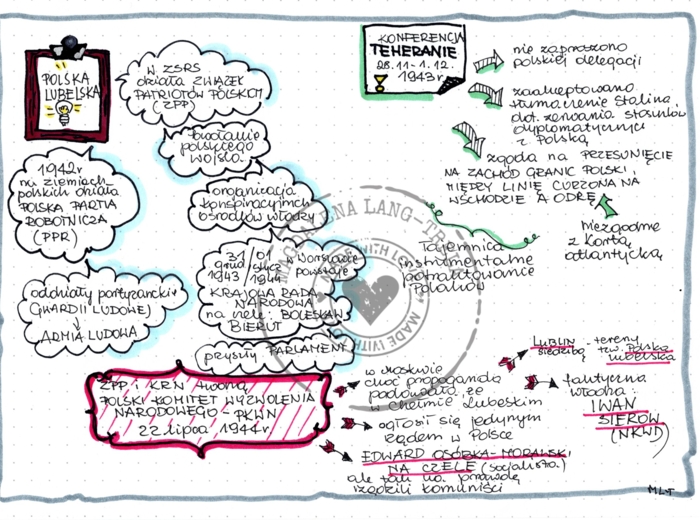 POLSKA
LUBELSKA
W ZSRS
działa ZWIĄZEK
PATRIOTÓW POLSKICH
(ZPP)
polskiego
wojska
1942r
na ziemiach
polskich działa
POLSKA PARTIA
ROBOTNICZA
(PPR)
organizacja
konspiracyjnych
ośrodków władzy
oddziały partyzanckie
GWARDII LUDOWEJ
↓
ARMIA LUDOWA
31/01
grud/stycz
1943/1944
w Warszawie
powstaje
KRAJOWA RADA
NARODOWA
na czele: BOLESŁAW
BIERUT
przyszły PARLAMENT
KONFERENCJA
TEHERANIE
28.11-1.12.
1943r.
nie zaproszono
polskiej delegacji
zaakceptowano
tłumaczenie Stalina
dot. zerwania stosunków
dyplomatycznych
z Polską
zgoda na PRZESUNIĘCIE
NA ZACHÓD GRANIC POLSKI,
MIĘDZY LINIĘ CURZONA NA
WSCHODZIE A ODRĘ
niezgodne
z Kartą
atlantycką
Tajemnica
instrumentalne
potraktowanie
Polaków
ZPP i KRN tworzą
POLSKI KOMITET WYZWOLENIA
NARODOWEGO - PKWN
22 lipca 1944r.
w Moskwie
choć propaganda
podawała, że
w Chełmie Lubelskim
ogłosił się jedynym
rządem w Polsce
EDWARD OSÓBKA-MORAWSKI
NA CZELE (socjalista)
ale tak na prawdę
rządzili komuniści
LUBLIN - tereny
siedzibą tzw. Polska
lubelska
faktyczna
władza:
IWAN
SIEROW
(NKWD)
MADE WITH LOVE
MLT